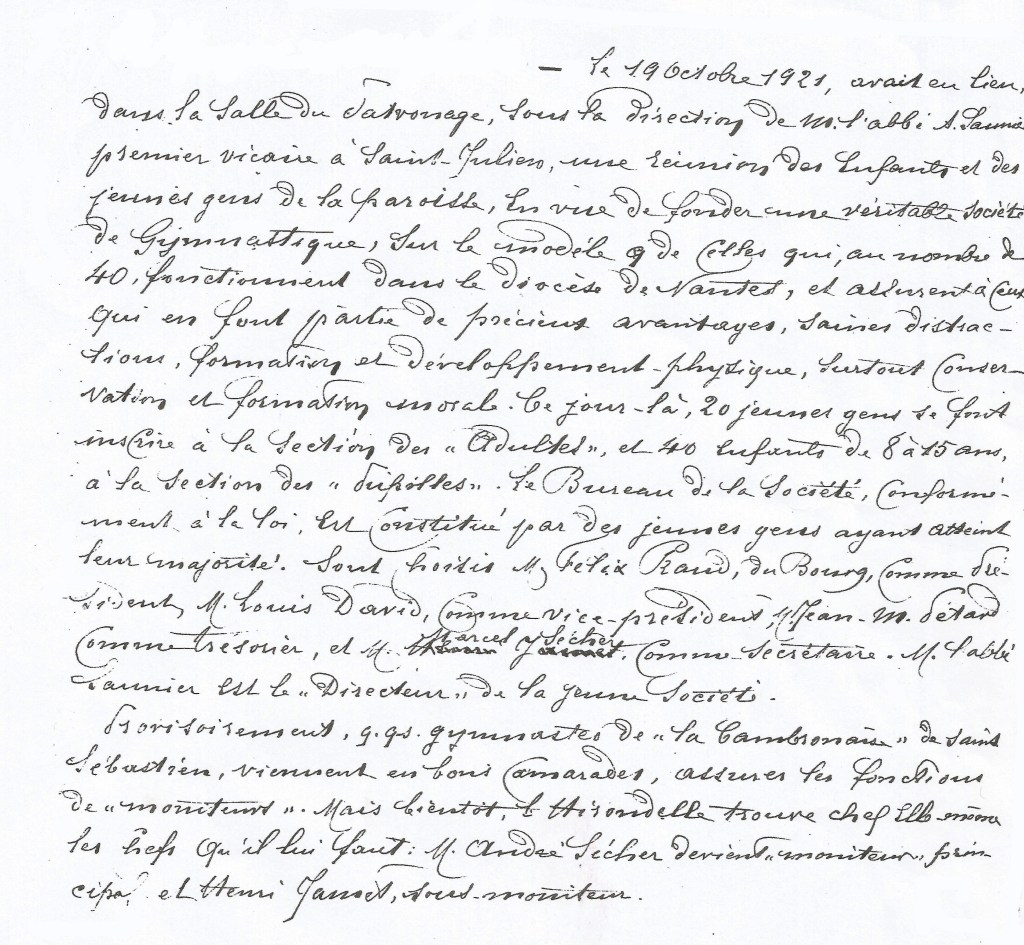 — le 19 Octobre 1921, avait eu lieu,
dans la salle du Patronage, sous la direction de M. l'abbé A. Saunier
premier vicaire à Saint-Julien, une réunion des Enfants et des
jeunes gens de la paroisse, en vue de fonder une véritable société
de Gymnastique, sur le modèle de Celles qui, au nombre de
40, fonctionnent dans le diocèse de Nantes, et assurent à Ceux
qui en font partie de précieux avantages, saines distrac-
tions, formation et développement physique, surtout Conser-
vation et formation morale. Ce jour-là, 20 jeunes gens se font
inscrire à la section des "Adultes", et 40 Enfants de 8 à 15 ans,
à la section des "Pupilles". Le Bureau de la Société, Conformé-
ment à la loi, Est Constitué par des jeunes gens ayant atteint
leur majorité. Sont choisis M. Félix Praud, du Bourg, Comme Pré-
sident, M. Louis David, Comme vice-président, M. Jean-M. Pétard
Comme Trésorier, et M. Marcel Sécher, Comme Secrétaire. M. l'abbé
Saunier Est le "Directeur" de la jeune Société.
Provisoirement, q.qs. gymnastes de "la Cambronaise" de Saint
Sébastien, viennent en bons Camarades, assurer les fonctions
de "moniteurs". Mais bientôt, l'Hirondelle trouve chez Elle-même
les chefs qu'il lui faut: M. André Sécher devient "moniteur" prin-
cipal et Henri Jamet, sous-moniteur.